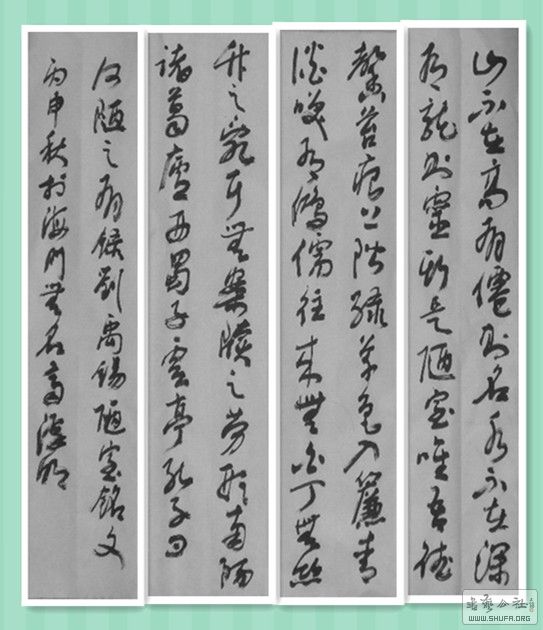 山不在高有僊則名水不在深
有龍則靈斯是陋室唯吾德
馨苔痕上階綠草色入簾青
談咲有鴻儒往來無白丁無絲
竹之亂耳無案牘之勞形南陽
諸葛廬西蜀子雲亭孔子曰
何陋之有錄劉禹錫陋室銘文
丙申秋於海門無名高明
書法公社
WWW.SHUFA.ORG